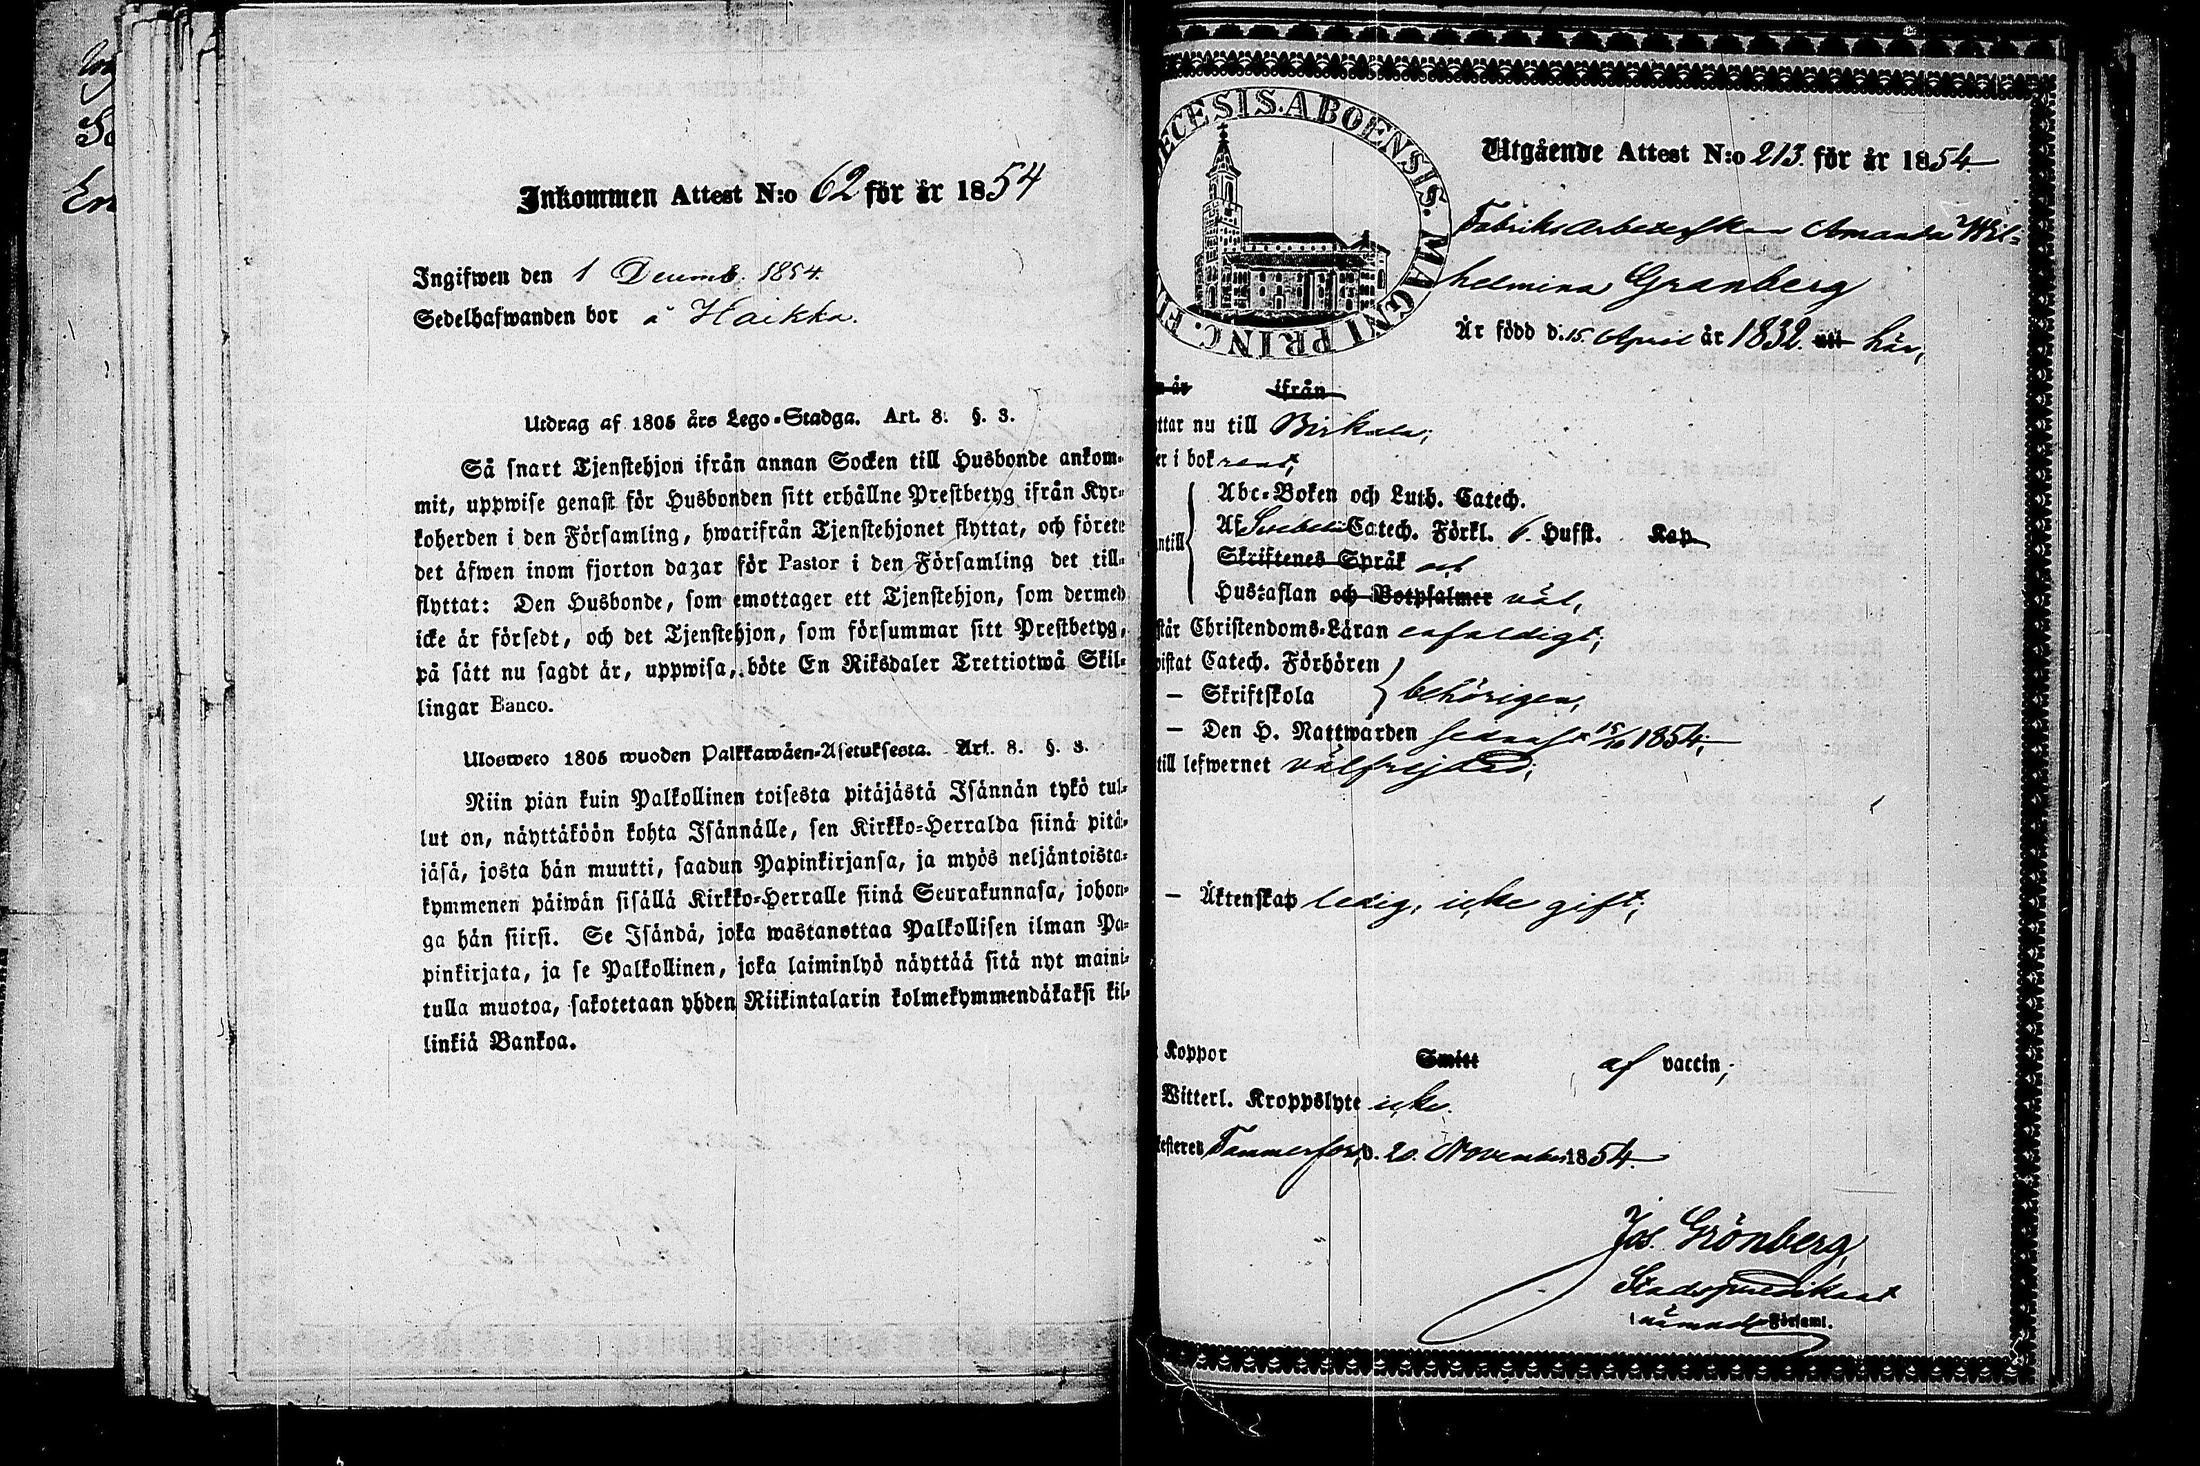 Inkommen Attest N:o 62 för år 1854
Ingifwen den 1 Decemb. 1854.
Sedelhafwanden bor å Haikka.
Utdrag af 1805 års Lego-Stadga. Art. 8. §. 3.
Så snart Tjenstehjon ifrån annan Socken till Husbonde ankom-
mit, uppwise genast för Husbonden sitt erhållne Prestbetyg ifrån Kyr-
koherden i den Församling, hwarifrån Tjenstehjonet flyttat, och förete
det äfwen inom fjorton dagar för Pastor i den Församling det till-
flyttat: Den Husbonde, som emottager ett Tjenstehjon, som dermed
icke är försedt, och det Tjenstehjon, som försummar sitt Prestbetyg,
på sätt nu sagdt är, uppwisa, böte En Riksdaler Trettiotwå Skil-
lingar Banco.
Ulosweto 1805 wuoden Palkkawäen-Asetuksesta. Art. 8. §. 3.
Niin pian kuin Palkollinen toisesta pitäjästä Isännän tykö tul-
lut on, näyttäköön kohta Isännälle, sen Kirkko-Herralda siinä pitä-
jäsä, josta hän muutti, saadun Papinkirjansa, ja myös neljäntoista-
kymmenen päiwän sisällä Kirkko-Herralle siinä Seurakunnasa, johon-
ga hän siirsi. Se Isändä, joka wastanottaa Palkollisen ilman Pa-
pinkirjata, ja se Palkollinen, joka laiminlyö näyttää sitä nyt maini-
tulla muotoa, sakotetaan yhden Riikintalarin kolmekymmendäkaksi kil-
linkiä Bankoa.
ECESIS. ABOENSIS. MAGNI PRINC. FI
Utgående Attest N:o 213. för år 1854.
Fabriks Arbeterskan Amanda Wil-
helmina Granberg
Är född d. 15. April år 1832. utt här,
n år ifrån
ttar nu till Birkala;
er i bok rent,
Abc-Boken och Luth. Catech.
ntill Af Svebelii Catech. Förkl. 6. Hufst. Kap
Skriftenes Språk och
Hustaflan och Botpsalmer väl,
står Christendoms-Läran enfaldigt;
wistat Catech. Förhören
— Skriftskola behörigen,
— Den H. Nattwarden sednast 15/10 1854;
till lefwernet välfrejdad;
— Äktenskap ledig, icke gift,
Koppor Smitt af vaccin,
Witterl. Kroppslyte icke.
testeres Tammerfors d. 20. November 1854.
Jos. Grönberg,
Stadspredikant
i nämnde Förs aml.